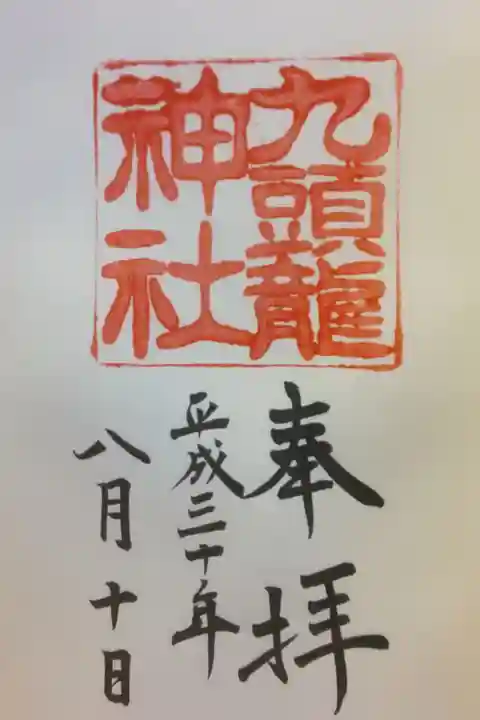 九頭龍
神社
奉拝
平成三十年
八月十日